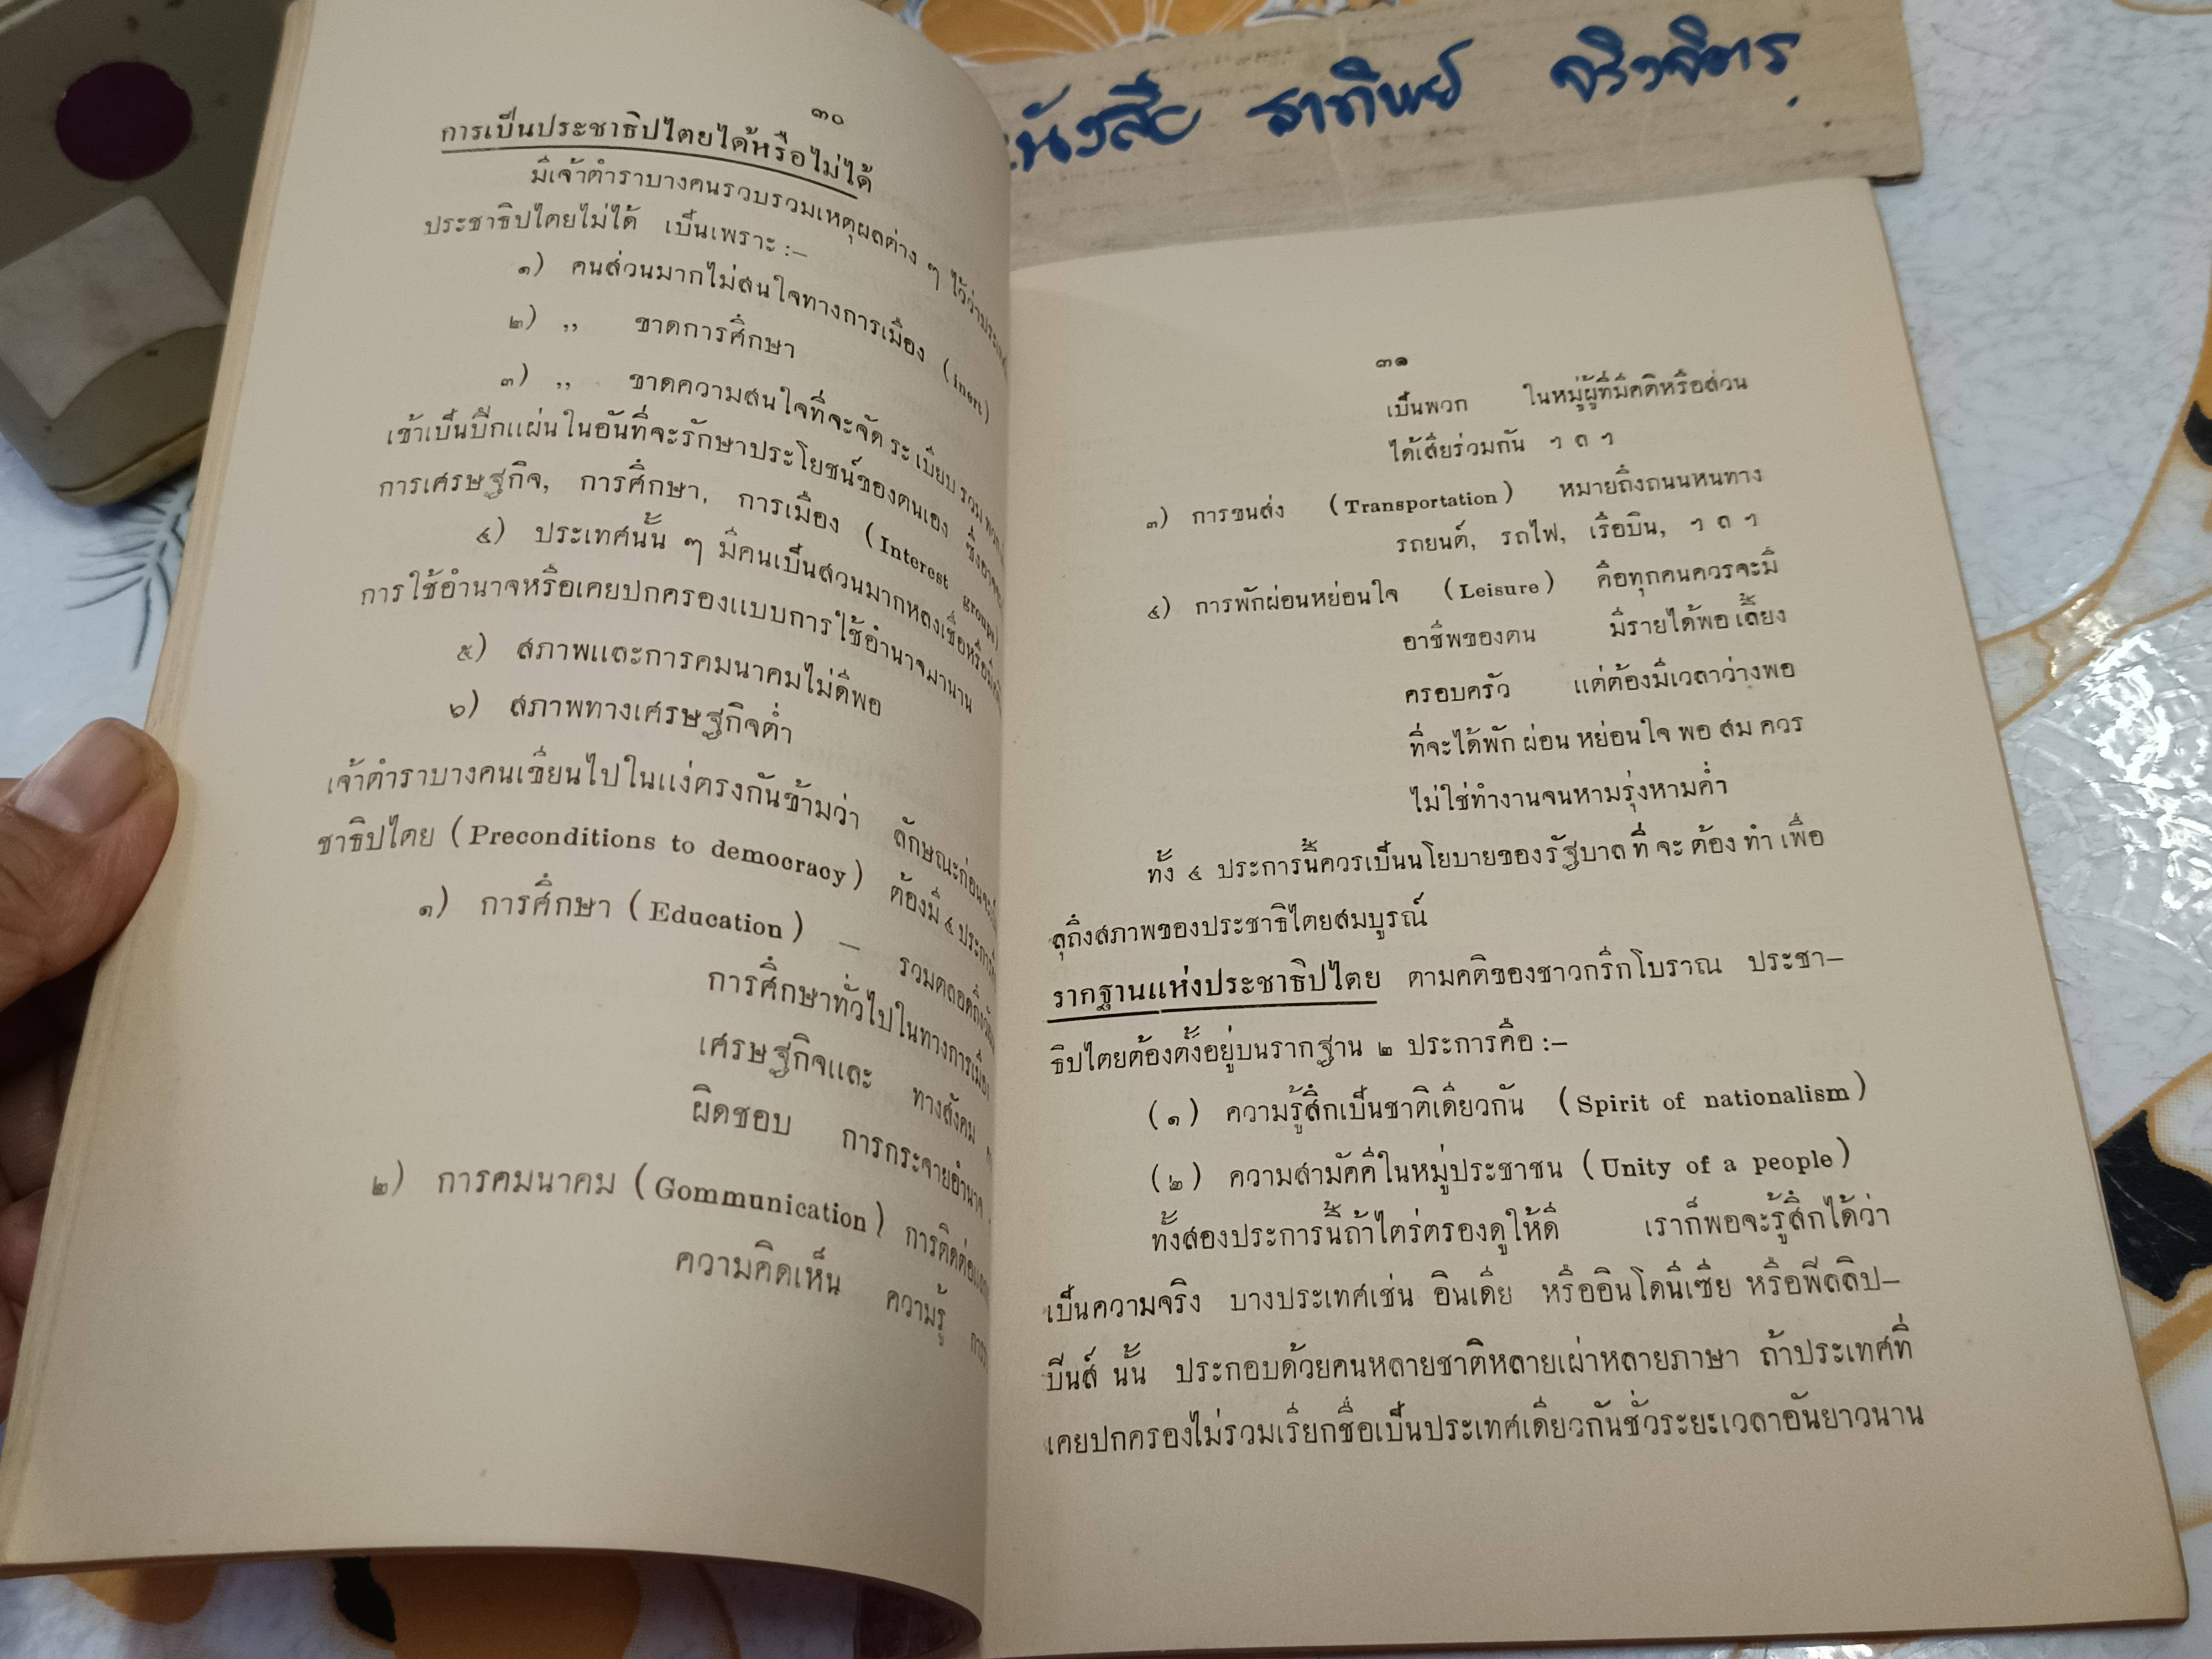 หนังสือ
๓๐
การเป็นประชาธิปไตยได้หรือไม่ได้
มีเจ้าตำราบางคนรวบรวมเหตุผลต่าง ๆ ไว้ว่า
ประชาธิปไตยไม่ได้ เป็นเพราะ :—
๑) คนส่วนมากไม่สนใจทางการเมือง (inert)
๒) ,, ขาดการศึกษา
๓) ,, ขาดความสนใจที่จะจัด ระ เบียบ รวม
เข้าเป็นปึกแผ่นในอันที่จะรักษาประโยชน์ของตนเอง
การเศรษฐกิจ, การศึกษา, การเมือง (Interest groups)
๔) ประเทศนั้น ๆ มีคนเป็นส่วนมากหลงเชื่อหรือ
การใช้อำนาจหรือเคยปกครองแบบการใช้อำนาจมานาน
๕) สภาพและการคมนาคมไม่ดีพอ
๖) สภาพทางเศรษฐกิจต่ำ
เจ้าตำราบางคนเขียนไปในแง่ตรงกันข้ามว่า ลักษณะก่อน
ชาธิปไตย (Preconditions to democracy) ต้องมี ๔ ประการ
๑) การศึกษา (Education) — รวมตลอดถึง
การศึกษาทั่วไปในทางการเมือง
เศรษฐกิจและ ทางสังคม
ผิดชอบ การกระจายอำนาจ
๒) การคมนาคม (Gommunication) การติดต่อ
ความคิดเห็น ความรู้
๓๑
เป็นพวก ในหมู่ผู้ที่มีคติหรือส่วน
ได้เสียร่วมกัน ฯ ล ฯ
๓) การขนส่ง (Transportation) หมายถึงถนนหนทาง
รถยนต์, รถไฟ, เรือบิน, ฯ ล ฯ
๔) การพักผ่อนหย่อนใจ (Leisure) คือทุกคนควรจะมี
อาชีพของตน มีรายได้พอ เลี้ยง
ครอบครัว แต่ต้องมีเวลาว่างพอ
ที่จะได้พัก ผ่อน หย่อนใจ พอ สม ควร
ไม่ใช่ทำงานจนหามรุ่งหามค่ำ
ทั้ง ๔ ประการนี้ควรเป็นนโยบายของรัฐบาล ที่ จะ ต้อง ทำ เพื่อ
ลุถึงสภาพของประชาธิไตยสมบูรณ์
รากฐานแห่งประชาธิปไตย ตามคติของชาวกรีกโบราณ ประชา—
ธิปไตยต้องตั้งอยู่บนรากฐาน ๒ ประการคือ :—
(๑) ความรู้สึกเป็นชาติเดียวกัน (Spirit of nationalism)
(๒) ความสามัคคีในหมู่ประชาชน (Unity of a people)
ทั้งสองประการนี้ถ้าไตร่ตรองดูให้ดี เราก็พอจะรู้สึกได้ว่า
เป็นความจริง บางประเทศเช่น อินเดีย หรืออินโดนีเซีย หรือฟิลลิป—
ปีนส์ นั้น ประกอบด้วยคนหลายชาติหลายเผ่าหลายภาษา ถ้าประเทศที่
เคยปกครองไม่รวมเรียกชื่อเป็นประเทศเดียวกันชั่วระยะเวลาอันยาวนาน